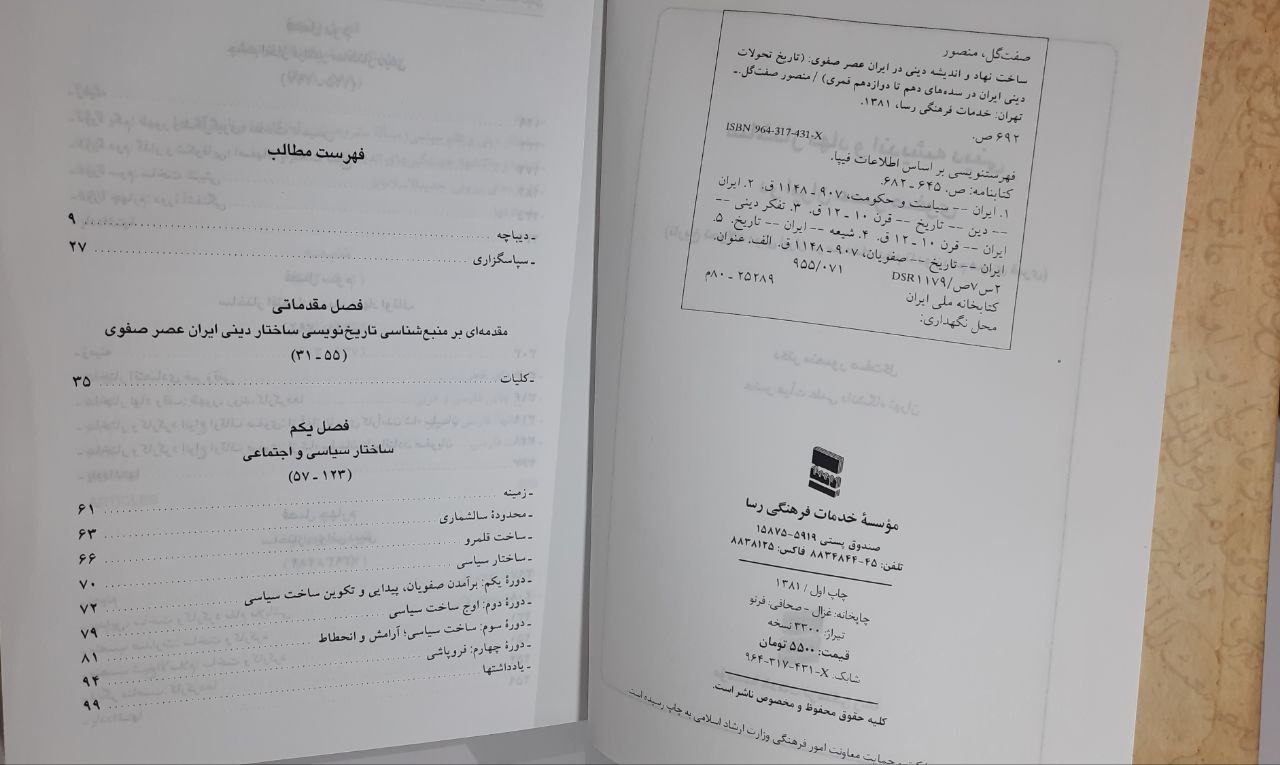 صفت‌گل، منصور
ساخت نهاد و اندیشه دینی در ایران عصر صفوی: (تاریخ تحولات
دینی ایران در سده‌های دهم تا دوازدهم قمری) / منصور صفت‌گل.ـ
تهران: خدمات فرهنگی رسا، ۱۳۸۱.
۶۹۲ ص.
ISBN 964-317-431-X
فهرستنویسی بر اساس اطلاعات فیپا.
کتابنامه: ص. ۶۴۵ ـ ۶۸۲.
۱. ایران -- سیاست و حکومت، ۹۰۷ ـ ۱۱۴۸ ق. ۲. ایران
-- دین -- تاریخ -- قرن ۱۰ ـ ۱۲ ق. ۳. تفکر دینی --
ایران -- قرن ۱۰ ـ ۱۲ ق. ۴. شیعه -- ایران -- تاریخ. ۵.
ایران -- تاریخ -- صفویان، ۹۰۷ ـ ۱۱۴۸ ق. الف. عنوان.
۲س۷ص/DSR۱۱۷۹ ۹۵۵/۰۷۱
کتابخانه ملی ایران ۲۵۲۸۹ ـ ۸۰م
محل نگهداری:
مؤسسهٔ خدمات فرهنگی رسا
صندوق پستی ۵۹۱۹–۱۵۸۷۵
تلفن: ۴۵–۸۸۳۴۸۴۴ فاکس: ۸۸۳۸۱۲۵
چاپ اول / ۱۳۸۱
چاپخانه: غزال - صحافی: فرنو
تیراژ: ۳۳۰۰ نسخه
قیمت: ۵۵۰۰ تومان
شابک. X-۹۶۴-۳۱۷-۴۳۱
کلیه حقوق محفوظ و مخصوص ناشر است.
حمایت معاونت امور فرهنگی وزارت ارشاد اسلامی به چاپ رسیده است
فهرست مطالب
ـ دیباچه ۹
ـ سپاسگزاری ۲۷
فصل مقدماتی
مقدمه‌ای بر منبع‌شناسی تاریخ‌نویسی ساختار دینی ایران عصر صفوی
(۵۵ ـ ۳۱)
ـ کلیات ۳۵
فصل یکم
ساختار سیاسی و اجتماعی
(۱۲۳ ـ ۵۷)
ـ زمینه ۶۱
ـ محدودهٔ سالشماری ۶۳
ـ ساخت قلمرو ۶۶
ـ ساختار سیاسی ۷۰
ـ دورهٔ یکم: برآمدن صفویان، پیدایی و تکوین ساخت سیاسی ۷۲
ـ دورهٔ دوم: اوج ساخت سیاسی ۷۹
ـ دورهٔ سوم: ساخت سیاسی؛ آرامش و انحطاط ۸۱
ـ دورهٔ چهارم: فروپاشی ۹۴
ـ یادداشتها ۹۹